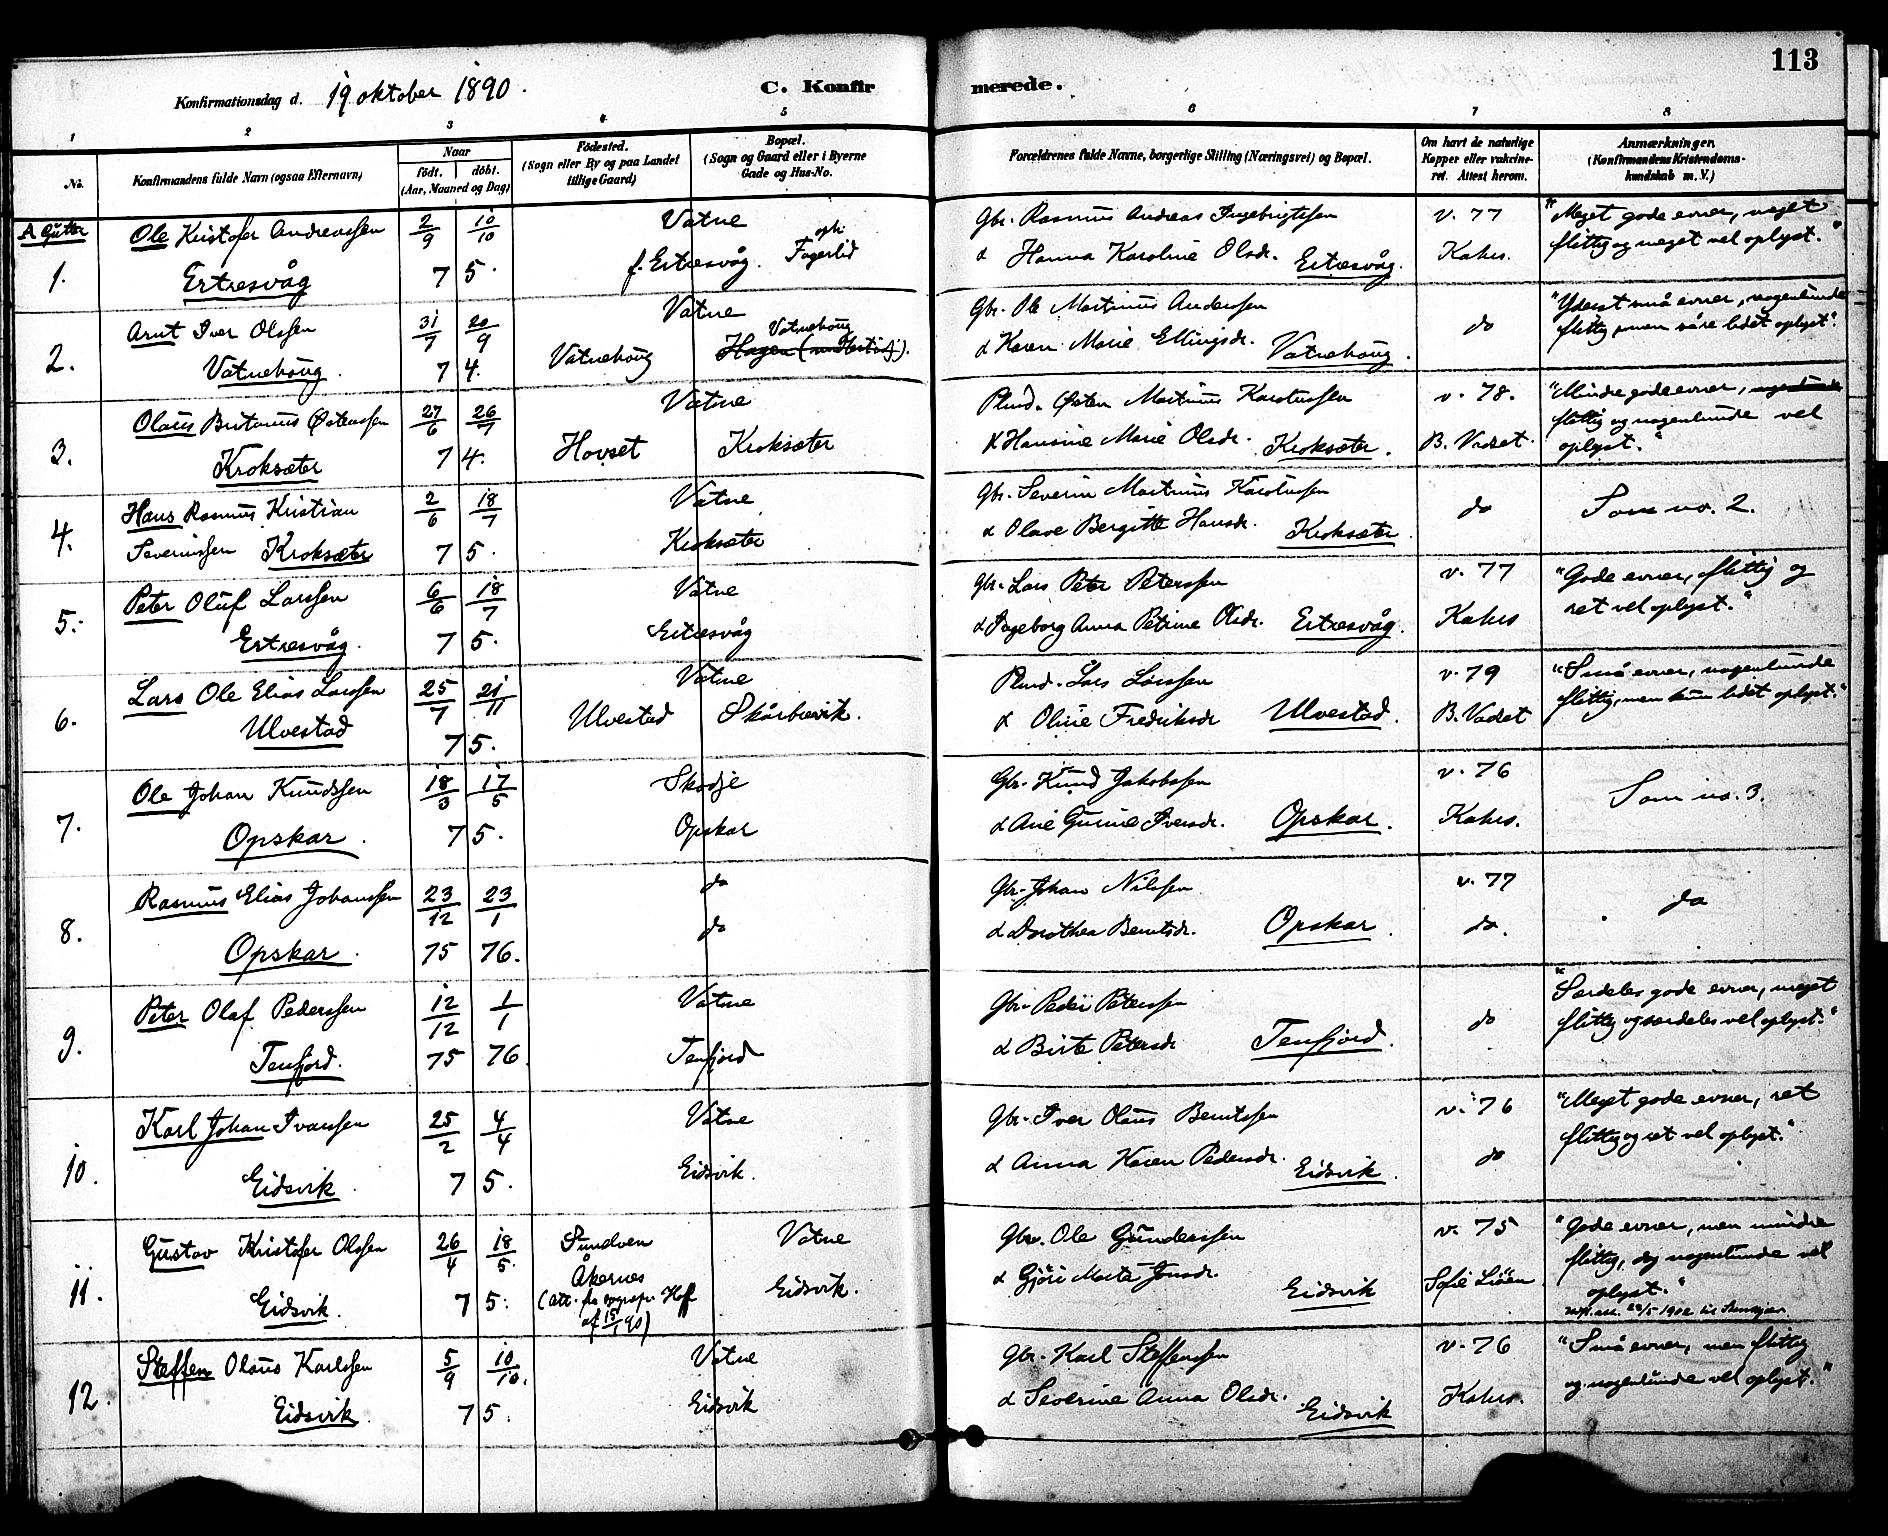 113
Konfirmationsdag d. 19 oktober 1890. C. Konfirmerede.
1 2 3 4 5 6 7 8
No. Konfirmandens fulde Navn (ogsaa Efternavn) Naar födt. döbt. (Aar, Maaned og Dag) Födested. (Sogn eller By og paa Landet tillige Gaard) Bopæl. (Sogn og Gaard eller i Byerne Gade og Hus-No. Forældrenes fulde Navne, borgerlige Stilling (Næringsvei) og Bopæl. Om havt de naturlige Kopper eller vakcineret. Attest herom. Anmærkninger. (Konfirmandens Kristendomskundskab m. V.)
A Gutter
1. Ole Kristofer Andreassen 2/9 10/10 Vatne Gbr. Rasmus Andreas Ingebrigtssen v. 77 "Meget gode evner, meget
Ertresvåg 7 5. f. Ertresvåg. Fagerlid & Hanna Karoline Olsdr. Ertresvåg. Kahrs. flittig og meget vel oplyst."
2. Arnt Iver Olssen 31/7 20/9 Vatne Gbr. Ole Martinus Anderssen do "Yderst små evner, nogenlunde
Vatnehoug. 7 4. Vatnehoug Vatnehoug Hagen & Karen Marie Ellingsdr. Vatnehoug. flittig, men såre lidet oplyst".
3. Olaus Østenssen 27/6 26/7 Vatne Østen Martinus Karolussen v. 78. "Mindre gode evner, nogenlunde
Kroksæter 7 4. Hovset Kroksæter & Hansine Marie Olsdr. Kroksæter. B. Vadset flittig og nogenlunde vel
oplyst."
4. Hans Rasmus Kristian 2/6 18/7 Vatne Gbr. Severin Martinus Karolussen do Som no. 2.
Severinssen Kroksæter 7 5. Kroksæter & Olave Bergitte Hansdr. Kroksæter.
5. Peter Oluf Larssen 6/6 18/7 Vatne Gbr. Lars Peter Peterssen v. 77 "Gode evner, flittig og
Ertresvåg. 7 5. Ertresvåg & Ingeborg Anna Petrine Olsdr. Ertresvåg. Kahrs ret vel oplyst."
6. Lars Ole Elias Larssen 25/7 21/11 Vatne Lars Larssen v. 79 "Små evner, nogenlunde
Ulvestad 7 5. Ulvestad Skårbrevik. & Oline Fredriksdr Ulvestad. B. Vadset flittig, men kun lidet oplyst."
7. Ole Johan Knudssen 18/3 17/5 Skodje Gbr. Knud Jakobssen v. 76 Som no. 3.
Opskar. 7 5. Opskar & Ane Gurine Iversdr. Opskar. Kahrs.
8. Rasmus Elias Johanssen 23/12 23/1 do Gbr. Johan Nilssen v. 77 do
Opskar. 75 76. do & Dorothea Berntsdr. Opskar. do.
9. Peter Olaf Pederssen 12/12 1/1 Vatne Gbr. Peder Peterssen do "Særdeles gode evner, meget
Tenfjord. 75 76. Tenfjord & Birte Petersdr Tenfjord. flittig og særdeles vel oplyst."
10. Karl Johan Ivarssen 25/2 4/4 Vatne Gbr. Iver Olaus Berntssen v. 76 "Meget gode evner, ret
Eidsvik. 7 5. Eidsvik. & Anna Karen Pedersdr. Eidsvik. do flittig og ret vel oplyst."
11. Gustav Kristofer Olssen 26/4 18/5. Sundven Vatne Gbr. Ole Gunderssen v. 75 "Gode evner, men mindre
Åkernes flittig, og nogenlunde vel
Eidsvik. 7 5. (Att. fra sognepr. Hoff Eidsvik. & Gjöri Marta Jonsdr. Eidsvik Sofie Liöen. oplyst."
af 15/1 90) 28/5 1902 til
12. Steffen Olaus Karlssen 5/9 10/10. Vatne Gbr. Karl Steffenssen v. 76 "Små evner, men flittig
Eidsvik. 7 5. Eidsvik & Severine Anna Olsdr. Eidsvik Kahrs. og nogenlunde vel oplyst."